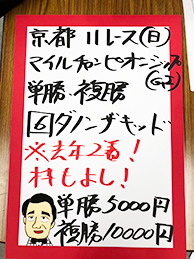 京都11レース(日)
マイルチャンピオンシップ
(GI)
単勝・複勝
6ダノンザキッド
※去年2着!
枠もよし!
単勝5000円
複勝10000円